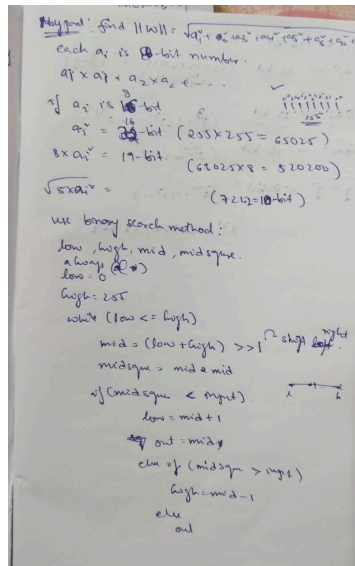 My goal: find ||W|| = √a₁² + a₂² + a₃² + a₄² + a₅² + a₆² + a₇² +
each aᵢ is 8-bit number.
a₁ × a₁ + a₂ × a₂ + ....
if aᵢ is 8-bit
aᵢ² = 16-bit (255×255 = 65025)
255
8 × aᵢ² = 19-bit. (65025×8 = 520200)
√8×aᵢ² = (721.2 = 10-bit)
use binary search method:
low, high, mid, midsqure.
always
low = 0
high = 255
while (low <= high)
mid = (low + high) >> 1 shift right
midsqure = mid * mid
if (midsqure < input)
low = mid + 1
out = mid
l h
else if (midsqu > input)
high = mid - 1
else
out